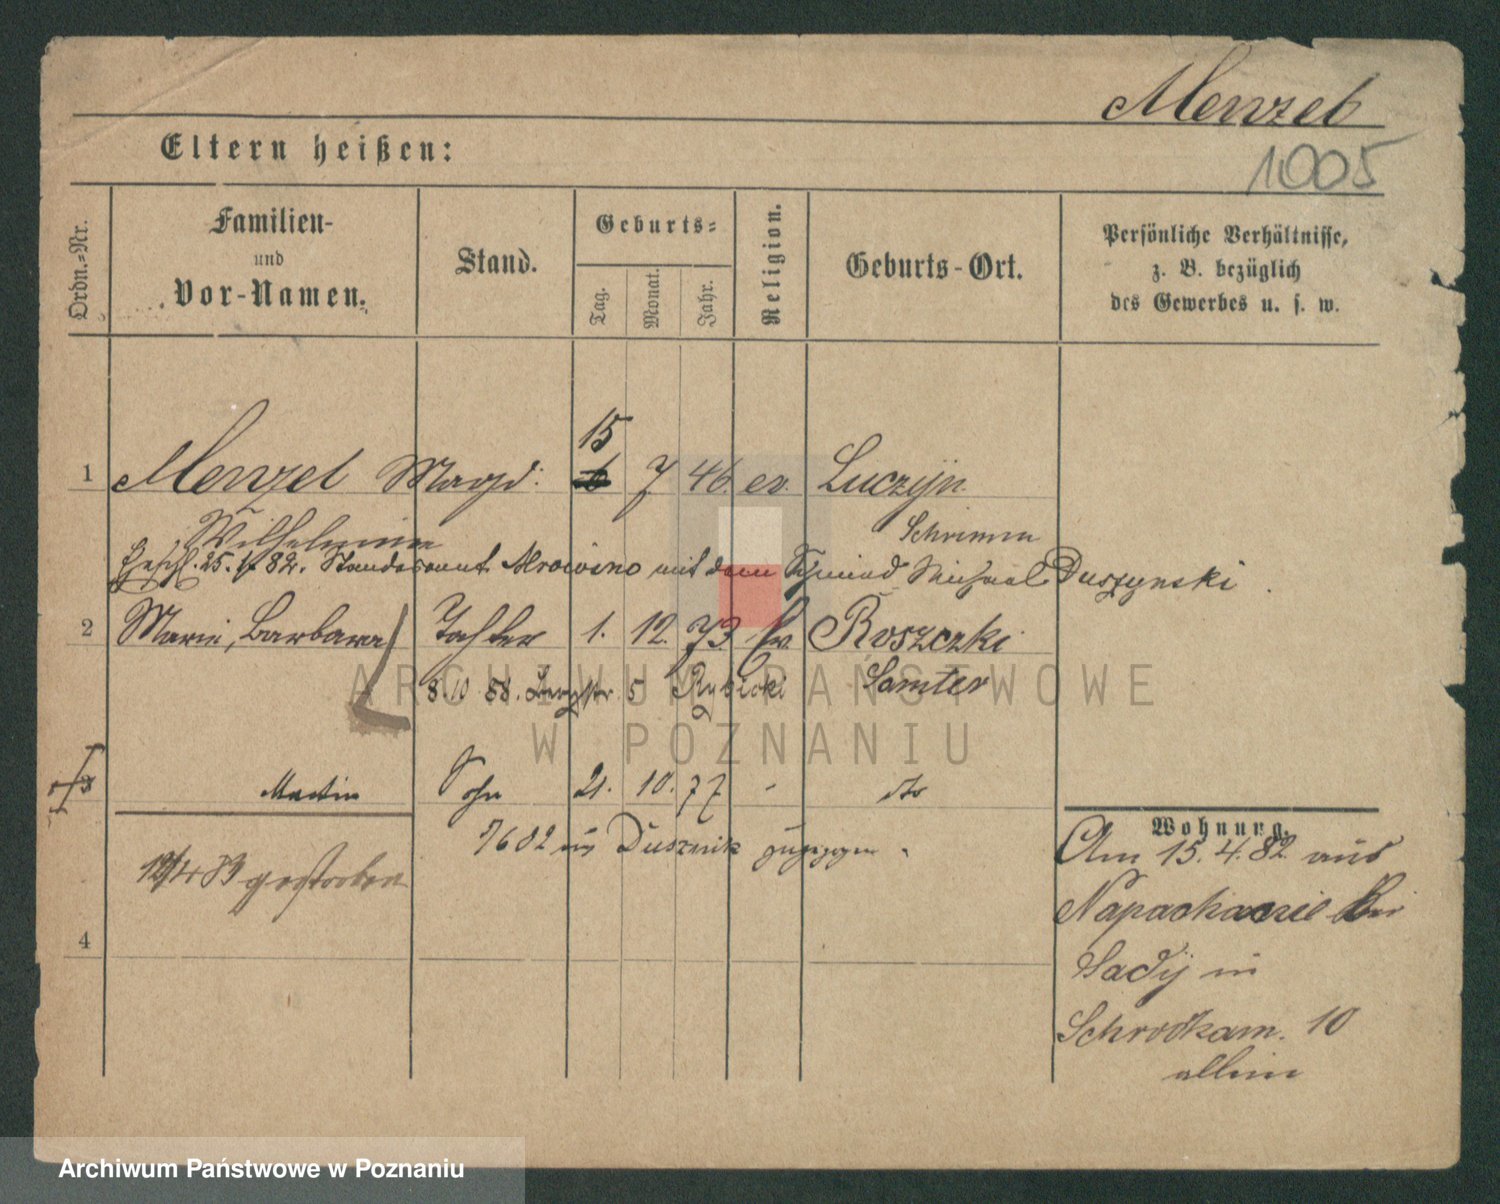 Menzel
1005
Eltern heißen:
Ordn.-Nr.
Familien-
und
Vor-Namen.
Stand.
Geburts-
Tag.
Monat.
Jahr.
Religion.
Geburts-Ort.
Persönliche Verhältnisse,
z. B. bezüglich
des Gewerbes u. s. w.
15
1 Menzel Magd. 6 7 46. ev. Luczyn
Wilhelmine Schrimm
25. 82. Standesamt Mrowino mit dem Schmied Michael Duszynski
2 Marie, Barbara Tochter 1. 12. 73 ev. Roszczki
8/10 88. 5 Rybicki Samter
ARCHIWUM PAŃSTWOWE
W POZNANIU
3 Martin Sohn 21. 10. 77 - do
7682 Dusznik zugezogen
89 gestorben
4
Wohnung.
Am 15. 4. 82 aus
Napachanie bei
Sady in
Schrodkam. 10
allein
Archiwum Państwowe w Poznaniu